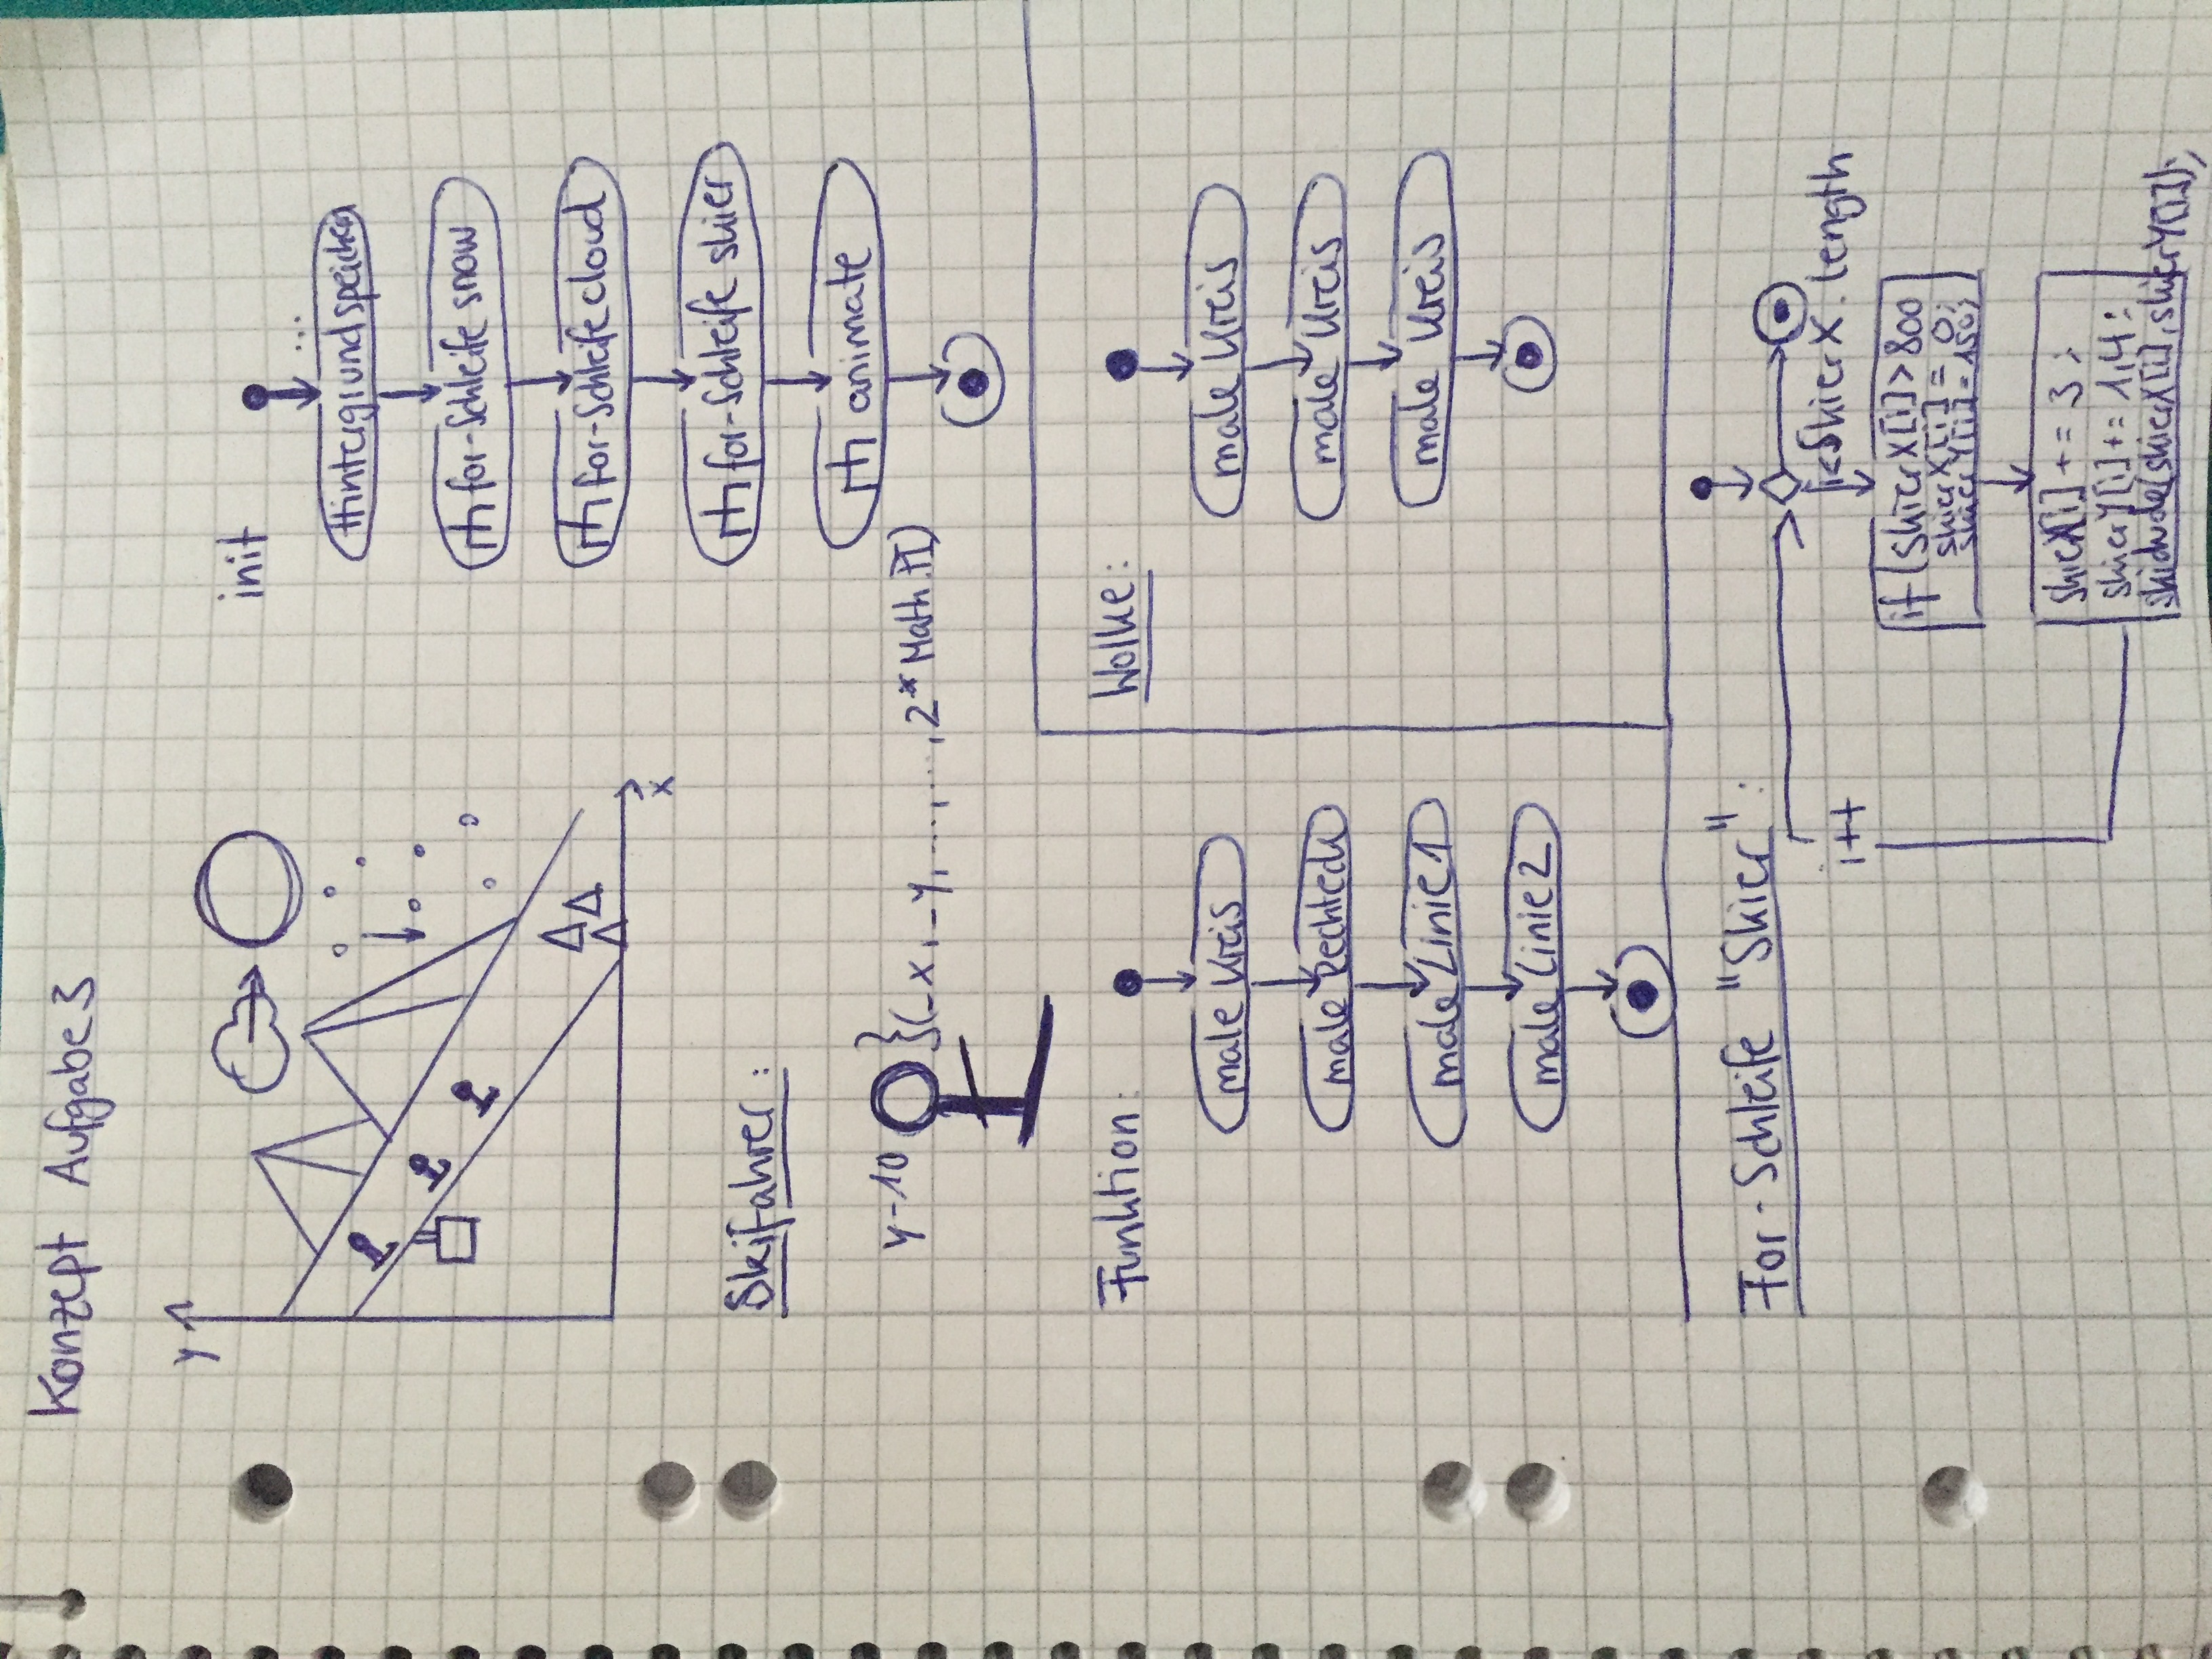 Konzept Aufgabe 3
y
x
init
...
Hintergrund speichern
for-Schleife snow
for-Schleife cloud
for-Schleife skier
animate
Skifahrer:
y-10 }(_x, _y, ..., ..., 2*Math.PI)
Funktion:
male Kreis
male Rechteck
male Linie 1
male Linie 2
Wolke:
male Kreis
male Kreis
male Kreis
For-Schleife "Skier":
i++
i<SkierX.length
if (skierX[i] > 800
skierX[i] = 0;
skierY[i] = 150;
skierX[i] += 3;
skierY[i] += 1,4;
skidude(skierX[i], skierY[i]);